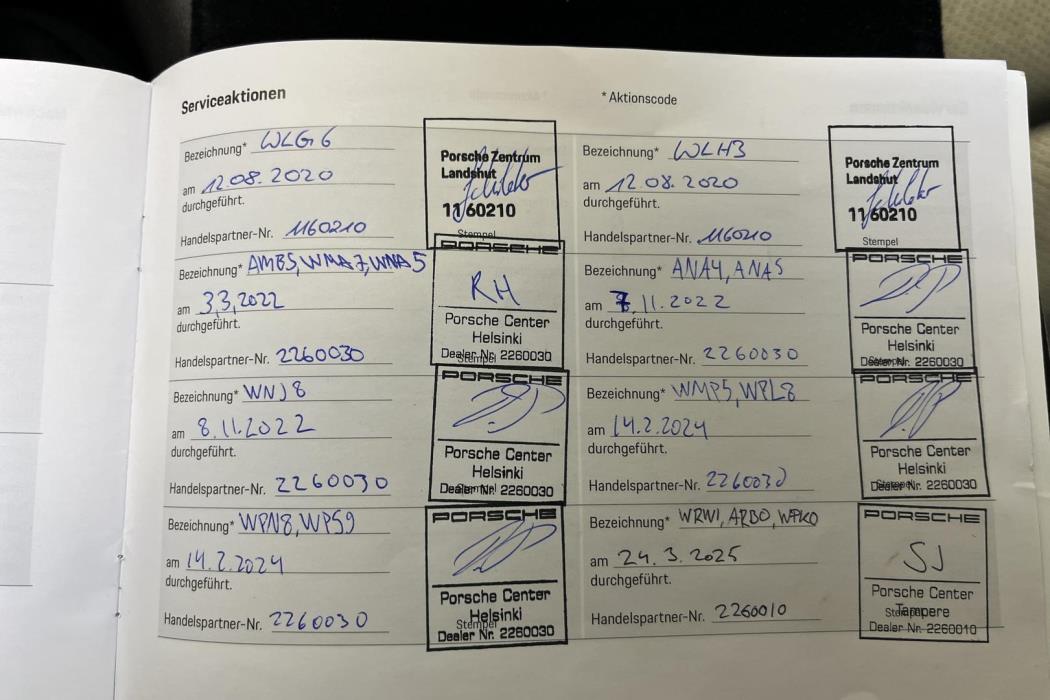 Serviceaktionen
* Aktionscode
Bezeichnung* WLG6
am 12.08.2020
durchgeführt.
Handelspartner-Nr. 1160210
Porsche Zentrum
Landshut
1160210
Stempel
Bezeichnung* WLH3
am 12.08.2020
durchgeführt.
Handelspartner-Nr. 1160210
Porsche Zentrum
Landshut
1160210
Stempel
Bezeichnung* AMB5, WMA7, WNA5
am 3.3.2022
durchgeführt.
Handelspartner-Nr. 2260030
PORSCHE
RH
Porsche Center
Helsinki
Dealer Nr. 2260030
Stempel
Bezeichnung* ANA4, ANA5
am 7.11.2022
durchgeführt.
Handelspartner-Nr. 2260030
PORSCHE
Porsche Center
Helsinki
Dealer Nr. 2260030
Stempel
Bezeichnung* WNJ8
am 8.11.2022
durchgeführt.
Handelspartner-Nr. 2260030
PORSCHE
Porsche Center
Helsinki
Dealer Nr. 2260030
Stempel
Bezeichnung* WMP5, WPL8
am 14.2.2024
durchgeführt.
Handelspartner-Nr. 2260030
PORSCHE
Porsche Center
Helsinki
Dealer Nr. 2260030
Stempel
Bezeichnung* WPN8, WPS9
am 14.2.2024
durchgeführt.
Handelspartner-Nr. 2260030
PORSCHE
Porsche Center
Helsinki
Stempel
Dealer Nr. 2260030
Bezeichnung* WRW1, APB0, WPK0
am 24.3.2025
durchgeführt.
Handelspartner-Nr. 2260010
PORSCHE
SJ
Porsche Center
Tampere
Stempel
Dealer Nr. 2260010